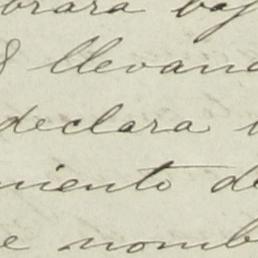 brara baj
8 llevand
declara
miento de
e nomb